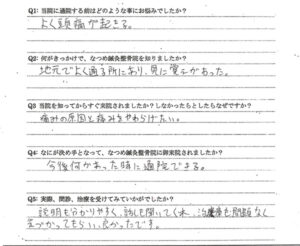 Q1: 当院に通院する前はどのような事にお悩みでしたか?
よく頭痛が起きる。
Q2: 何がきっかけで、なつめ鍼灸整骨院を知りましたか?
地元でよく通る所にあり、見に覚えがあった。
Q3 当院を知ってからすぐ来院されましたか?しなかったとしたらなぜですか?
痛みの原因と痛みをやわらげたい。
Q4: なにが決め手となって、なつめ鍼灸整骨院に御来院されましたか?
今後何かあった時に通院できる。
Q5: 実際、問診、治療を受けてみていかがでしたか?
説明も分かりやすく、話しを聞いてくれ、治療も問題なく
気づかってもらい、良かったです。